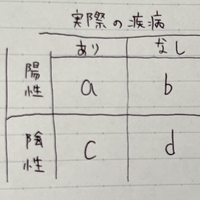 実際の疾病
あり なし
陽性 a b
陰性 c d